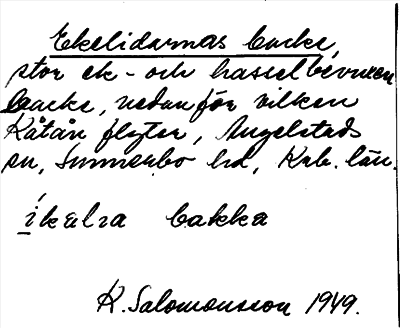 Ekelidarnas backe,
stor ek- och hasselbevuxen
backe, nedanför vilken
Kåtån flyter, Angelstads
sn, Sunnerbo hd, Krb. län.
backa
K. Salomonsson 1949.